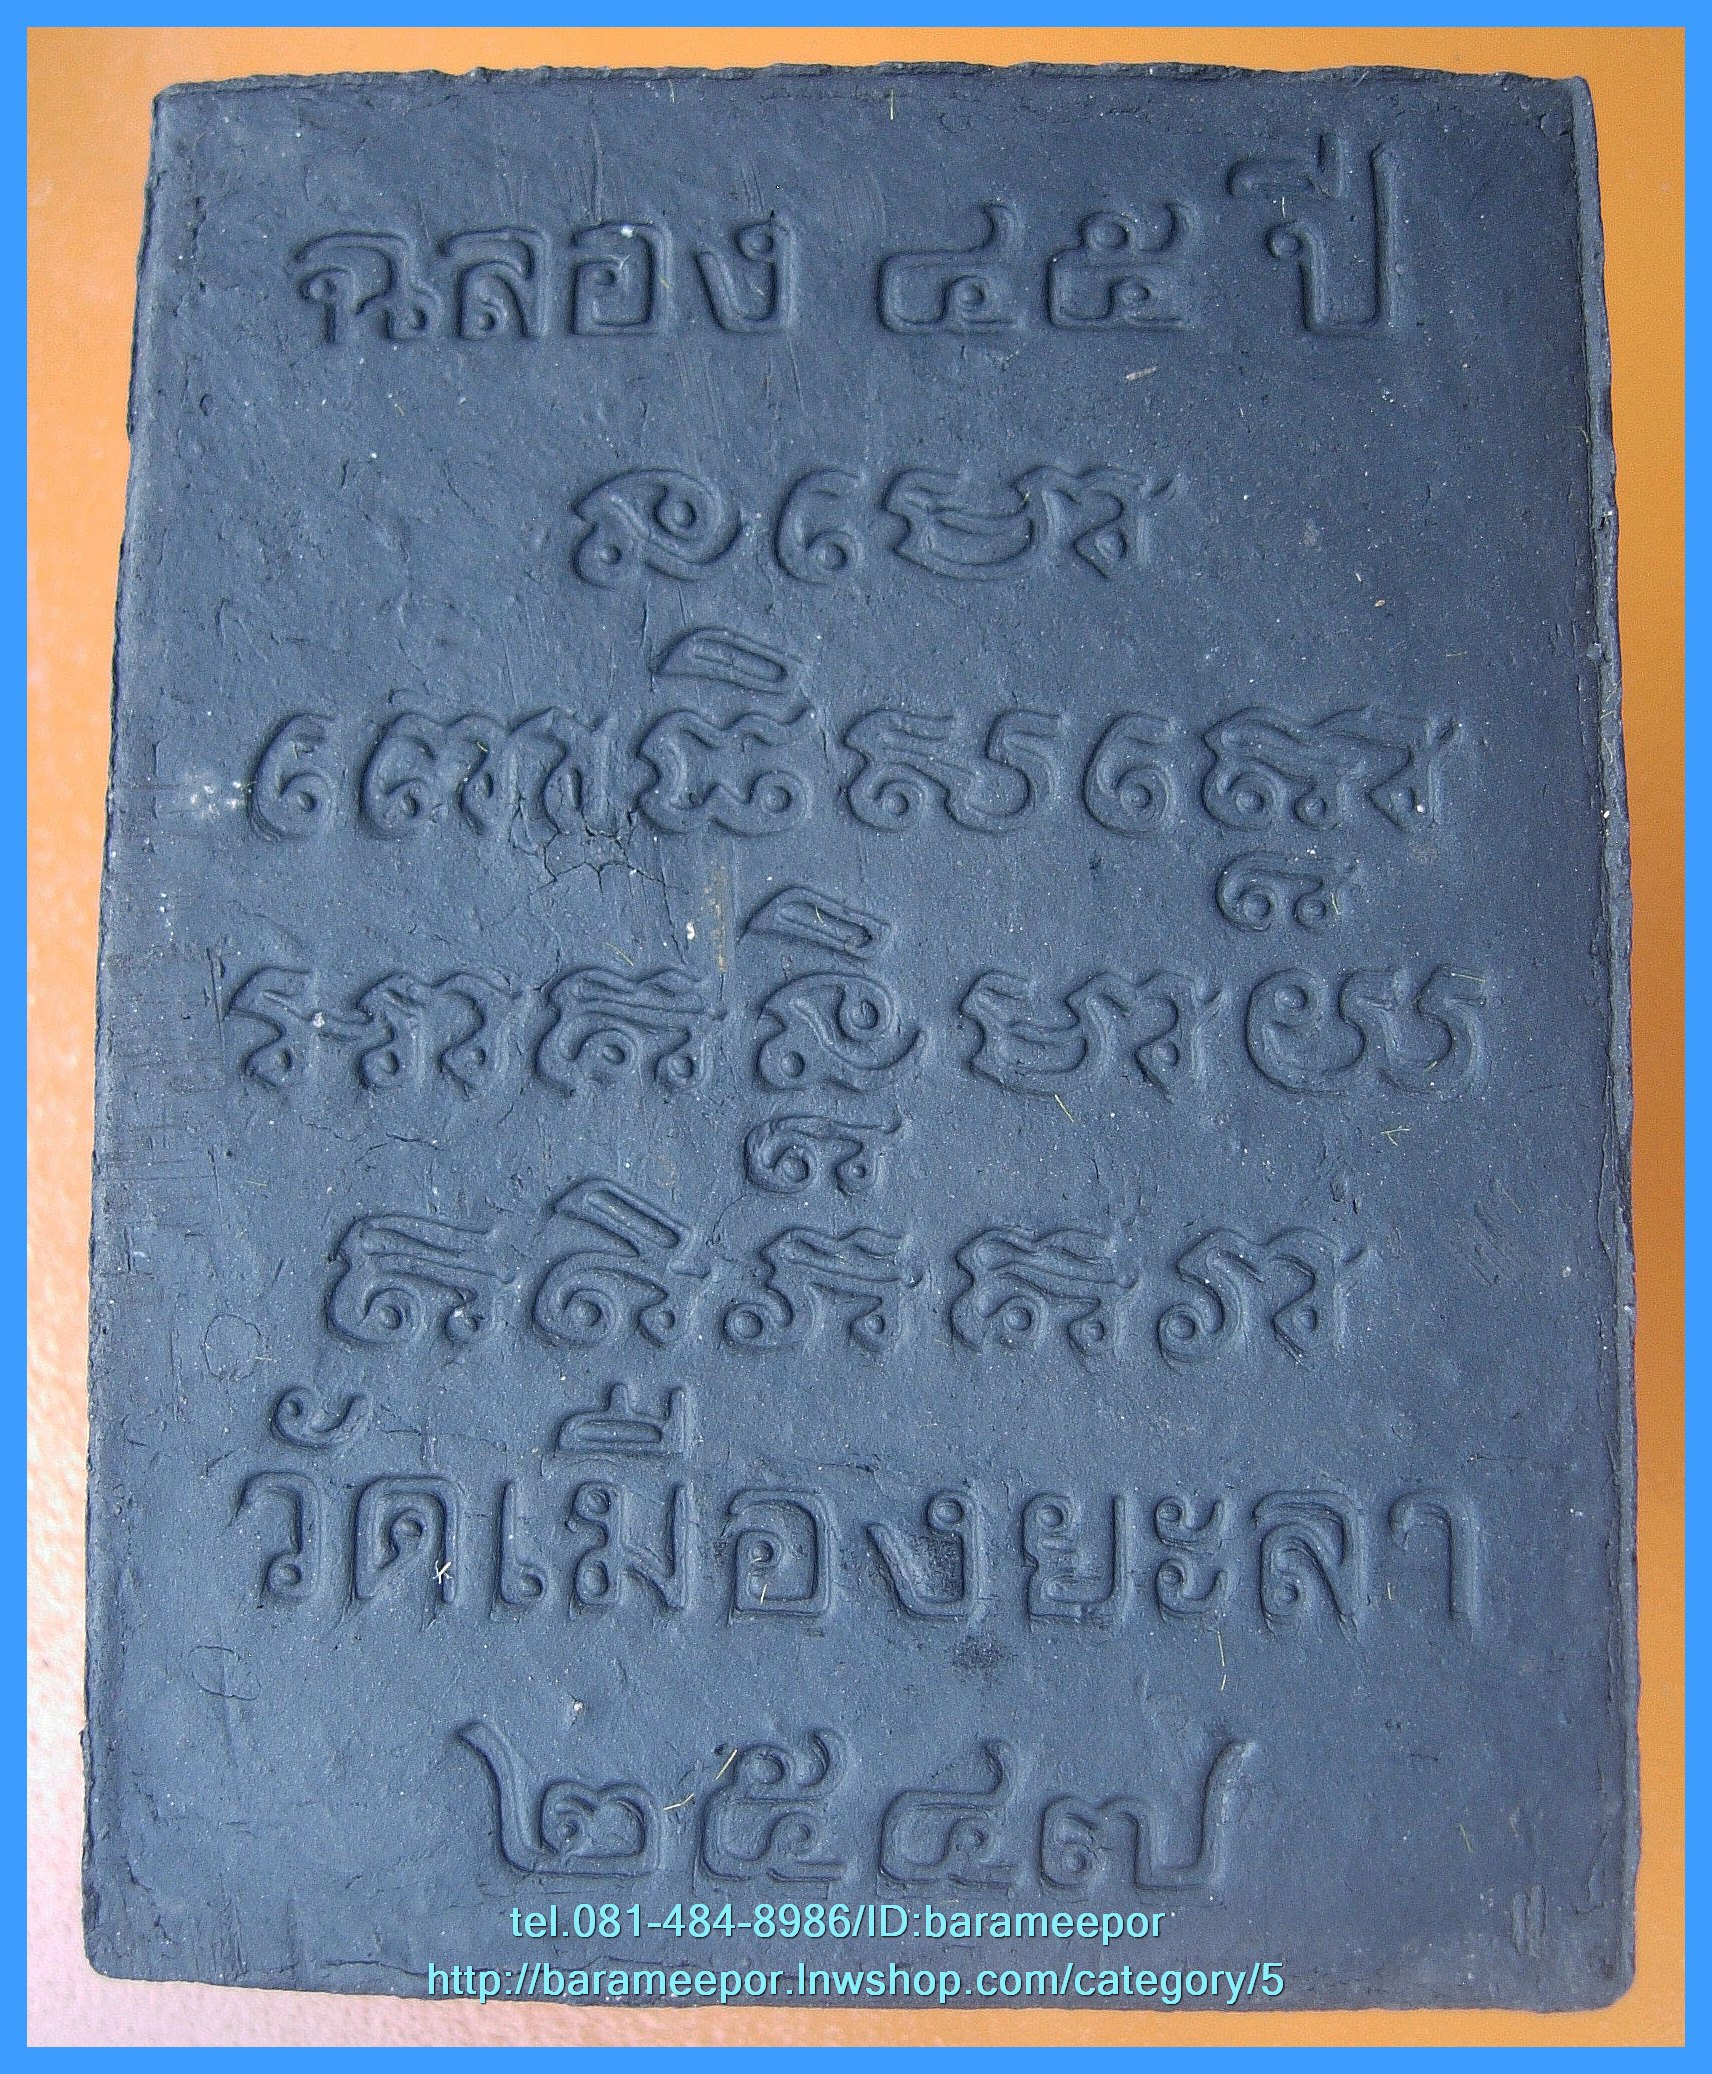 ฉลอง ๔๕ ปี
នមោ
ពោធិសត្តោ
អាគន្តិមាយ
ឥតិភគវា
วัดเมืองยะลา
๒๕๔๗
tel.081-484-8986/ID:barameepor
http://barameepor.lnwshop.com/category/5